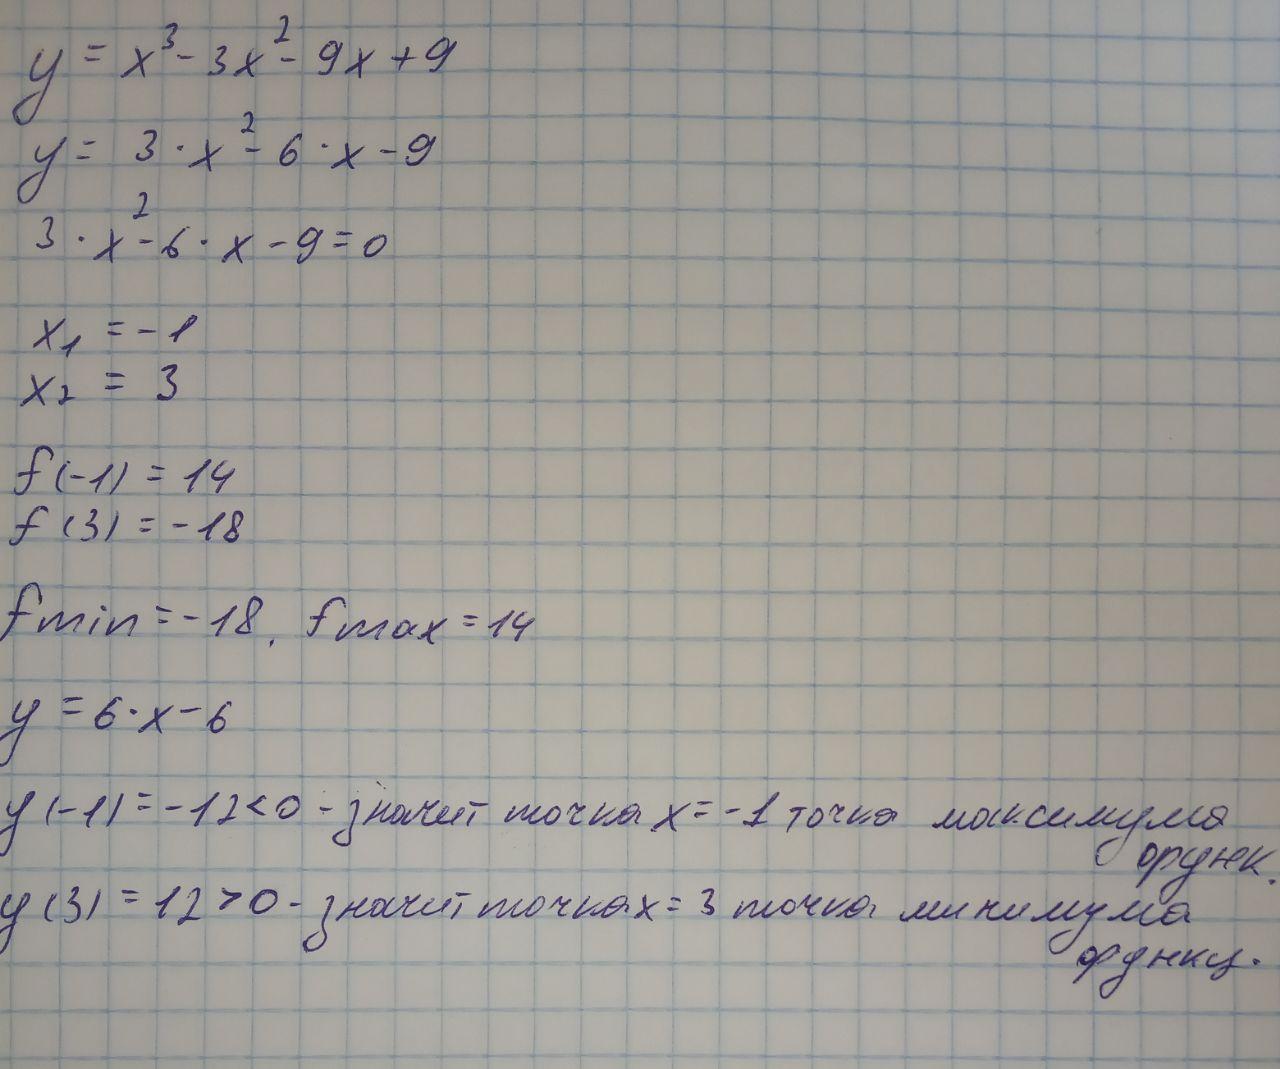 y = x³ - 3x² - 9x + 9
y = 3 · x² - 6 · x - 9
3 · x² - 6 · x - 9 = 0
x₁ = -1
x₂ = 3
f(-1) = 14
f(3) = -18
fmin = -18, fmax = 14
y = 6 · x - 6
y(-1) = -12 < 0 - значит точка x = -1 точка максимума
функ.
y(3) = 12 > 0 - значит точка x = 3 точка минимума
функц.